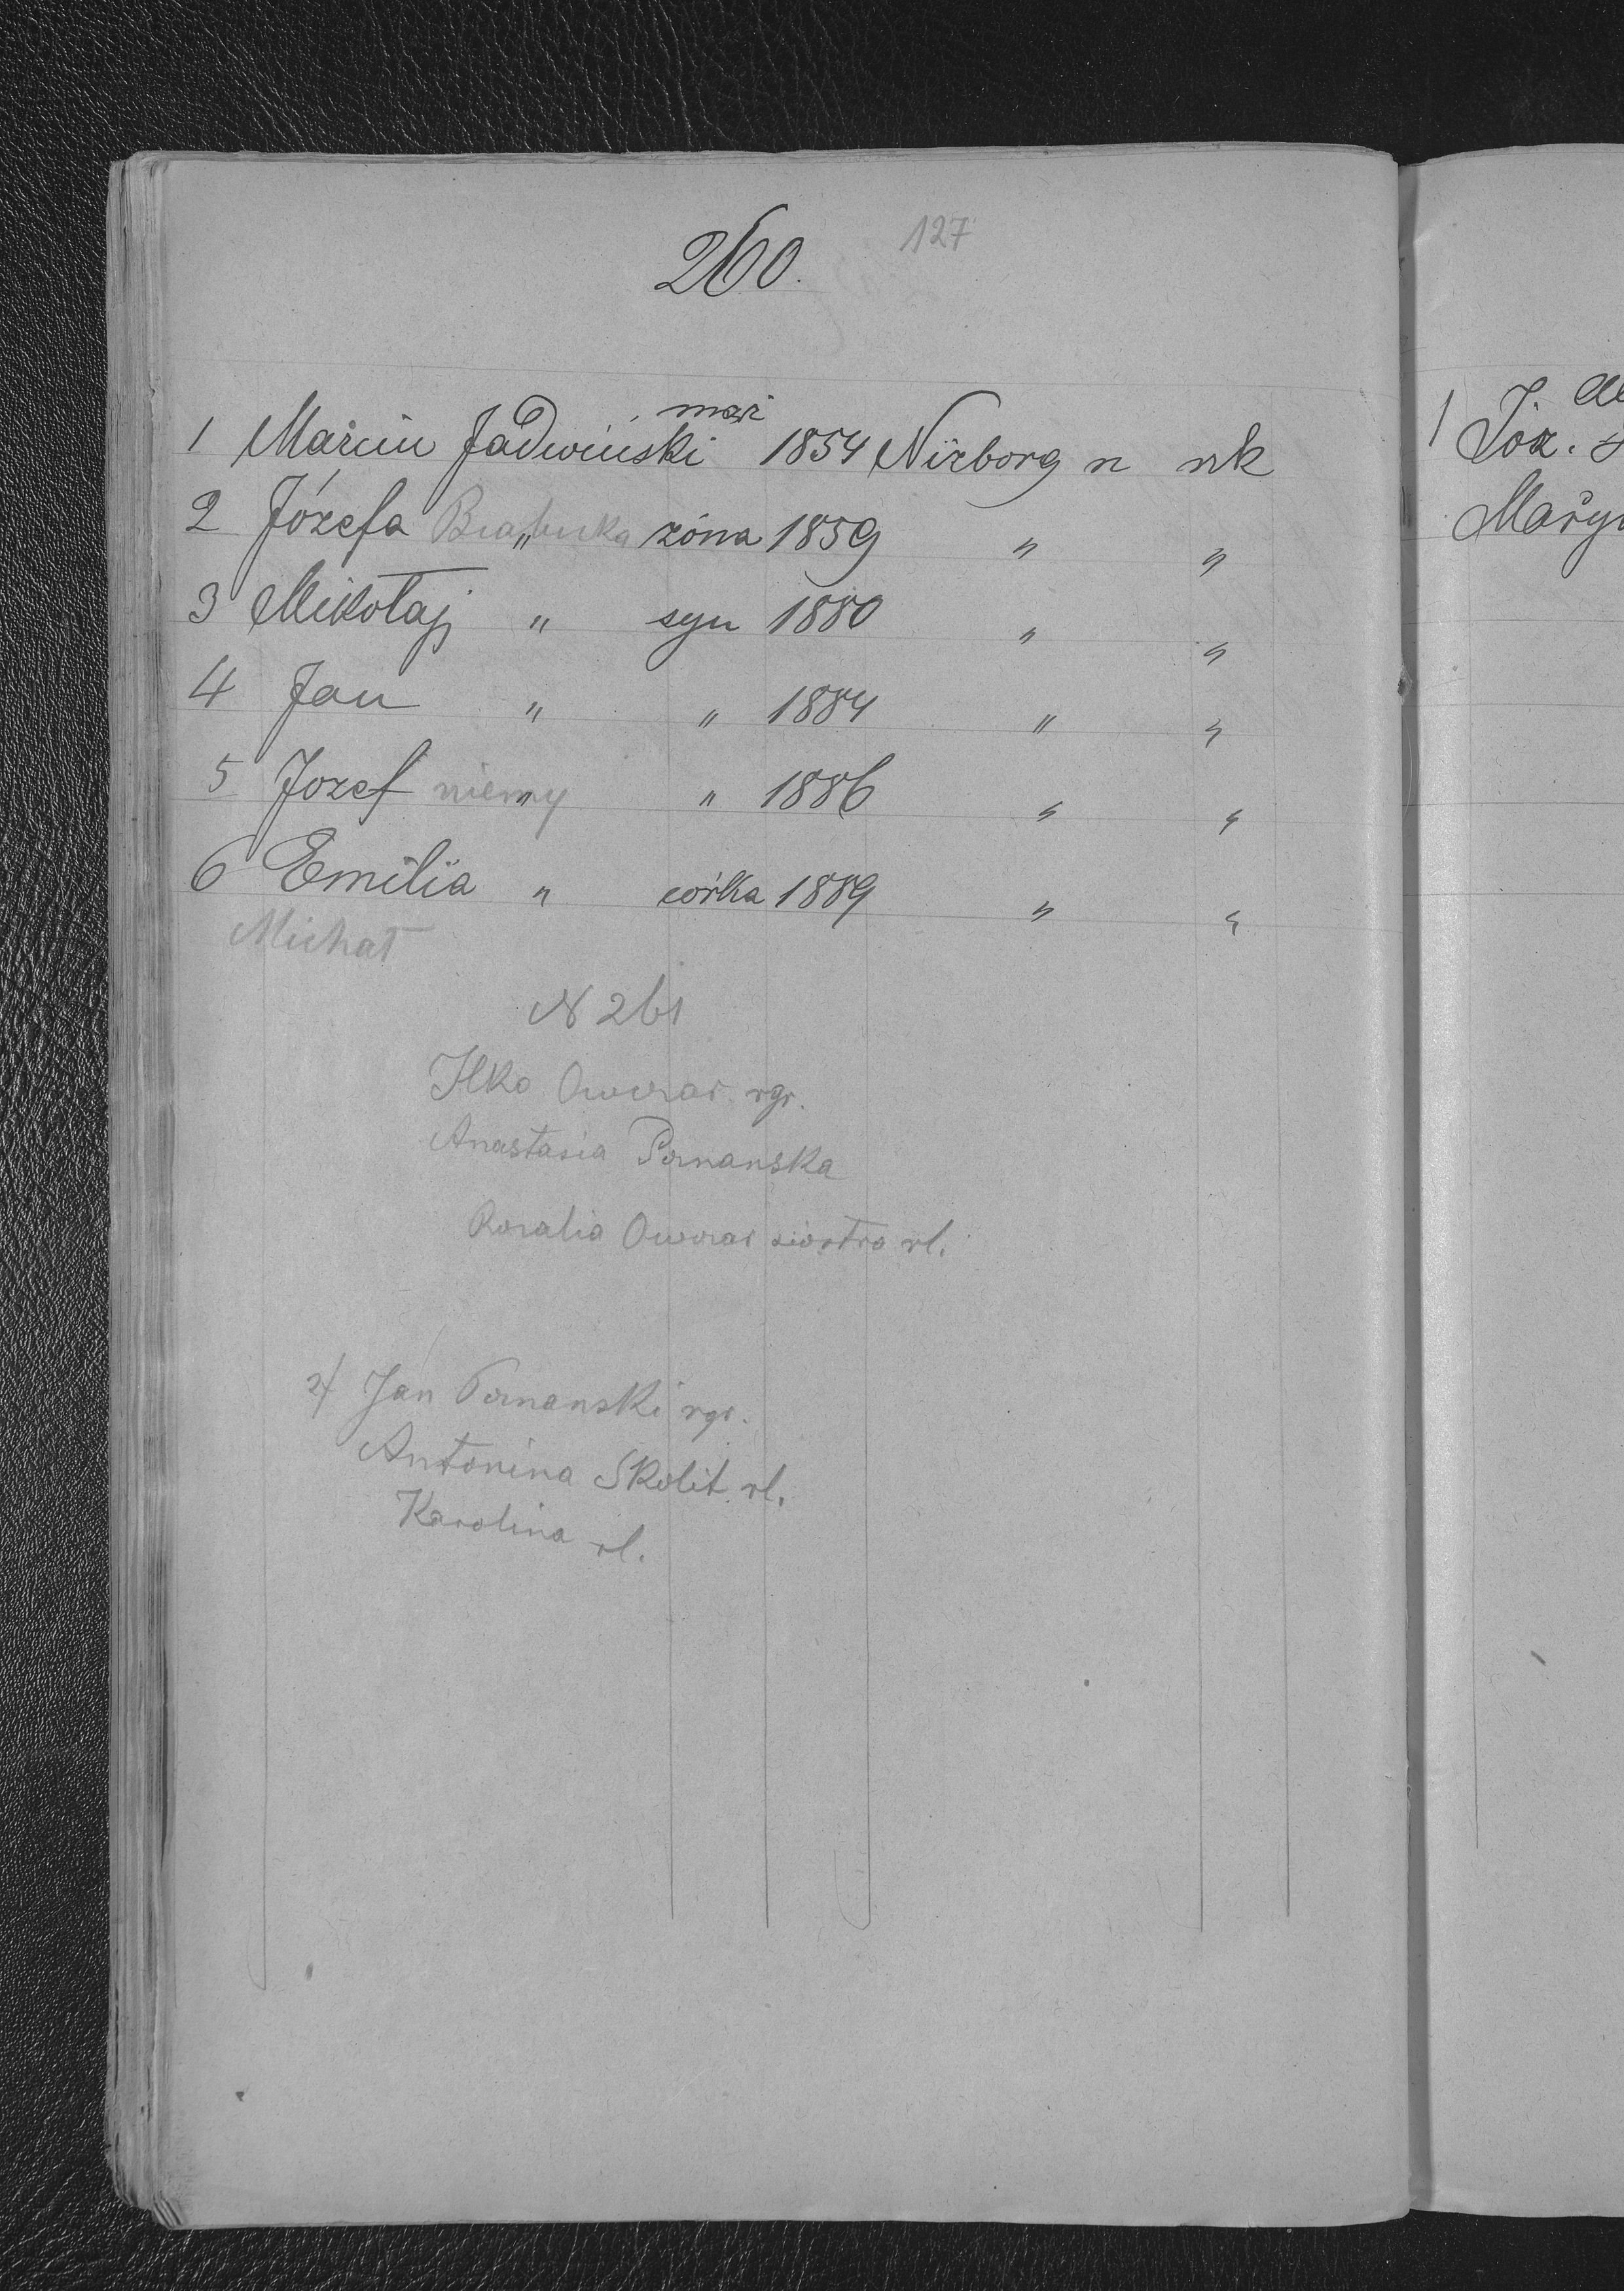 260. 127
1 Marcin Jadwiński mąż 1854 Niżborg n nk
2 Józefa " żóna 1859 " "
3 Mikołaj " syn 1880 " "
4 Jan " " 1884 " "
5 Jozef niemy " " 1886 " "
6 Emilia " córka 1889 " "
Michał
N 261
Ilko Oworas rgr.
Anastasia Pornanska
Rozalia Oworas siostra rl.
2/ Jan Pornanski rgr.
Antonina Skolit rl.
Karolina rl.
1 Józ.